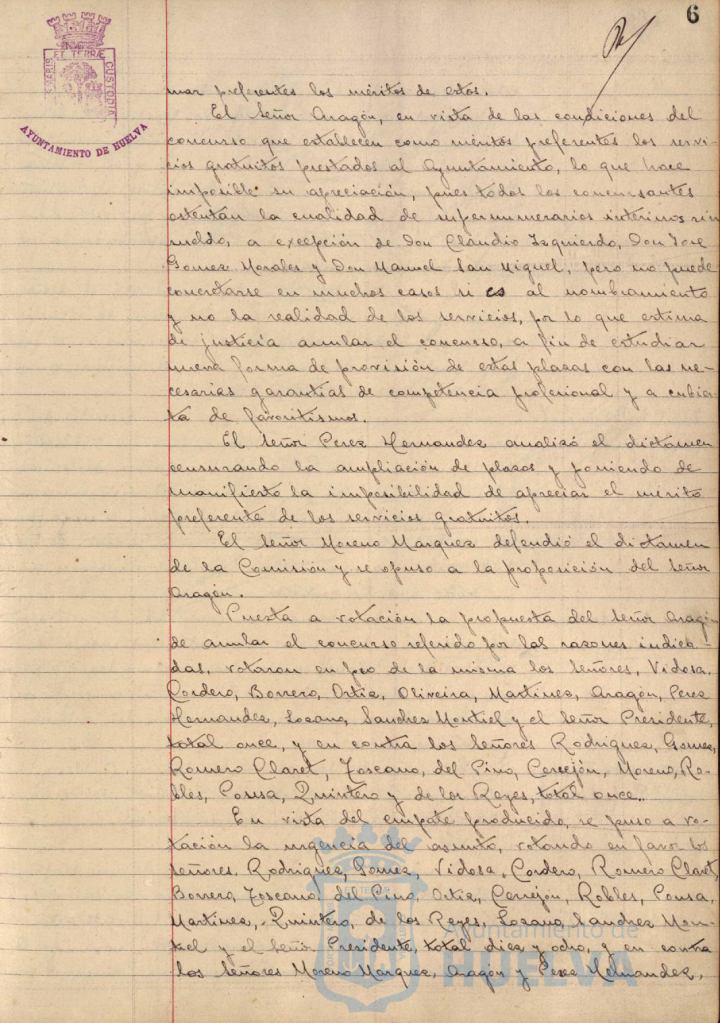 6
PORTUS MARIS ET TERRÆ CUSTODIA
AYUNTAMIENTO DE HUELVA
mar preferentes los méritos de estos.
El Señor Aragón, en vista de las condiciones del
concurso que establecen como méritos preferentes los servi-
cios gratuitos prestados al Ayuntamiento, lo que hace
imposible su apreciación, pues todos los concursantes
ostentan la cualidad de supernumerarios interinos sin
sueldo, a excepción de Don Claudio Izquierdo, Don José
Gomez Morales y Don Manuel San Miguel, pero no puede
concretarse en muchos casos si es al nombramiento
y no la realidad de los servicios, por lo que estima
de justicia anular el concurso, a fin de estudiar
nueva forma de provisión de estas plazas con las ne-
cesarias garantias de competencia profesional y a cubier-
ta de favoritismos.
El Señor Perez Hernandez analizó el dictamen
censurando la ampliación de plazas y poniendo de
manifiesto la imposibilidad de apreciar el merito
preferente de los servicios gratuitos.
El Señor Moreno Marquez defendió el dictamen
de la Comisión y se opuso a la proposición del Señor
Aragón.
Puesta a votación la propuesta del Señor Aragón
de anular el concurso referido por las razones indica-
das, votaron en pro de la misma los Señores, Vidosa,
Cordero, Borrero, Ortiz, Oliveira, Martinez, Aragón, Perez
Hernandez, Lozano, Sanchez Montiel y el Señor Presidente,
total once, y en contra los Señores Rodriguez, Gomez,
Romero Claret, Toscano, del Pino, Cerrejón, Moreno, Ro-
bles, Ponsa, Quintero y de los Reyes, total once.
En vista del empate producido, se puso a vo-
tación la urgencia del asunto, votando en favor los
señores. Rodriguez, Gomez, Vidosa, Cordero, Romero Claret,
Borrero, Toscano, del Pino, Ortiz, Cerrejón, Robles, Ponsa,
Martinez, Quintero, de los Reyes, Lozano, Sanchez Mon-
tiel y el Señor Presidente, total diez y ocho, y en contra
los Señores Moreno Marquez, Aragon y Perez Hernandez,
Ayuntamiento de
HUELVA